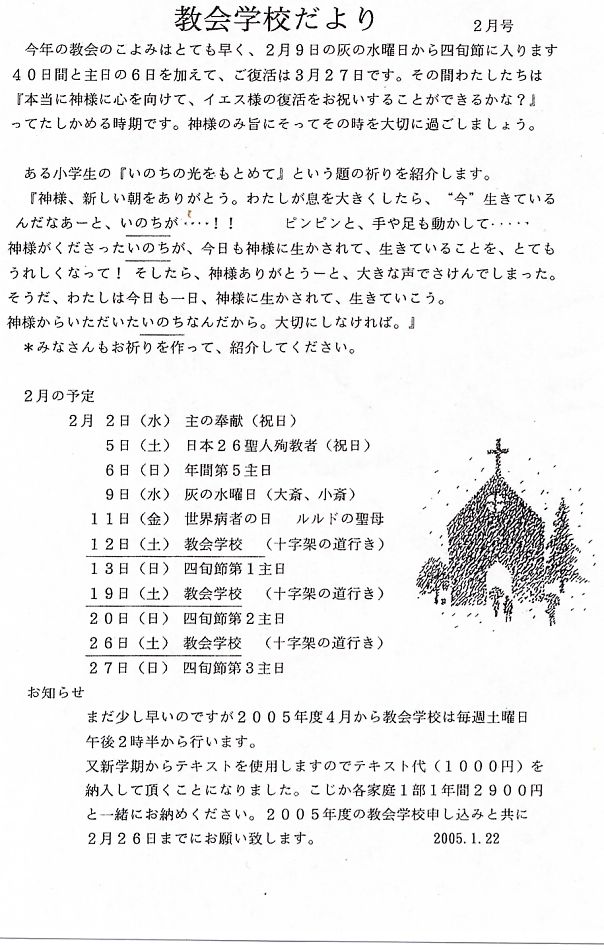 教会学校だより 2月号
今年の教会のこよみはとても早く、2月9日の灰の水曜日から四旬節に入ります
40日間と主日の6日を加えて、ご復活は3月27日です。その間わたしたちは
『本当に神様に心を向けて、イエス様の復活をお祝いすることができるかな?』
ってたしかめる時期です。神様のみ旨にそってその時を大切に過ごしましょう。
ある小学生の『いのちの光をもとめて』という題の祈りを紹介します。
『神様、新しい朝をありがとう。わたしが息を大きくしたら、“今”生きている
んだなあーと、いのちが‥‥!! ピンピンと、手や足も動かして‥‥‥
神様がくださったいのちが、今日も神様に生かされて、生きていることを、とても
うれしくなって! そしたら、神様ありがとうーと、大きな声でさけんでしまった。
そうだ、わたしは今日も一日、神様に生かされて、生きていこう。
神様からいただいたいのちなんだから。大切にしなければ。』
*みなさんもお祈りを作って、紹介してください。
2月の予定
2月 2日(水) 主の奉献(祝日)
5日(土) 日本26聖人殉教者(祝日)
6日(日) 年間第5主日
9日(水) 灰の水曜日(大斎、小斎)
11日(金) 世界病者の日 ルルドの聖母
12日(土) 教会学校 (十字架の道行き)
13日(日) 四旬節第1主日
19日(土) 教会学校 (十字架の道行き)
20日(日) 四旬節第2主日
26日(土) 教会学校 (十字架の道行き)
27日(日) 四旬節第3主日
お知らせ
まだ少し早いのですが2005年度4月から教会学校は毎週土曜日
午後2時半から行います。
又新学期からテキストを使用しますのでテキスト代(1000円)を
納入して頂くことになりました。こじか各家庭1部1年間2900円
と一緒にお納めください。2005年度の教会学校申し込みと共に
2月26日までにお願い致します。 2005.1.22